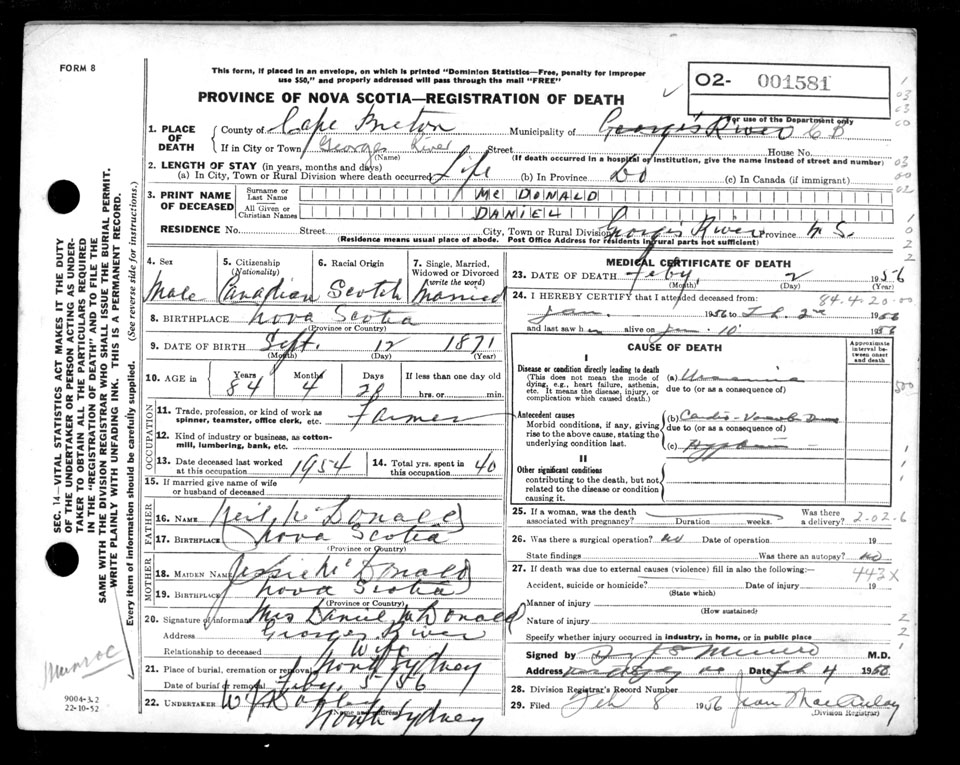 FORM 8
This form, if placed in an envelope, on which is printed "Dominion Statistics—Free, penalty for improper
use $50," and properly addressed will pass through the mail "FREE"
O2- 001581
For use of the Department only
PROVINCE OF NOVA SCOTIA—REGISTRATION OF DEATH
1. PLACE OF DEATH
County of Cape Breton Municipality of George's River C B
If in City or Town Georges River Street House No.
(Name) (If death occurred in a hospital or institution, give the name instead of street and number)
2. LENGTH OF STAY (in years, months and days)
(a) In City, Town or Rural Division where death occurred Life (b) In Province Do (c) In Canada (if immigrant)
3. PRINT NAME OF DECEASED
Surname or Last Name McDONALD
All Given or Christian Names DANIEL
RESIDENCE No. Street City, Town or Rural Division Georges River Province N. S.
(Residence means usual place of abode. Post Office Address for residents in rural parts not sufficient)
4. Sex Male
5. Citizenship (Nationality) Canadian
6. Racial Origin Scotch
7. Single, Married, Widowed or Divorced (write the word) Married
8. BIRTHPLACE Nova Scotia
(Province or Country)
9. DATE OF BIRTH Sept. 12 1871
(Month) (Day) (Year)
10. AGE in Years Months Days If less than one day old
84 4 20 hrs. or min.
OCCUPATION
11. Trade, profession, or kind of work as spinner, teamster, office clerk, etc. Farmer
12. Kind of industry or business, as cotton-mill, lumbering, bank, etc.
13. Date deceased last worked at this occupation 1954
14. Total yrs. spent in this occupation 40
15. If married give name of wife or husband of deceased
FATHER
16. NAME Neil McDonald
17. BIRTHPLACE Nova Scotia
(Province or Country)
MOTHER
18. MAIDEN NAME Jessie McDonald
19. BIRTHPLACE Nova Scotia
(Province or Country)
20. Signature of informant Mrs Daniel McDonald
Address Georges River
Relationship to deceased Wife
21. Place of burial, cremation or removal North Sydney
Date of burial or removal Feby. 5/56
22. UNDERTAKER
(Name and address) North Sydney
MEDICAL CERTIFICATE OF DEATH
23. DATE OF DEATH Feby. 2 1956
(Month) (Day) (Year)
24. I HEREBY CERTIFY that I attended deceased from: 84.4.20.00
Jan. 1956 to Feb. 2nd 1956
and last saw him alive on Jan. 10 1956
CAUSE OF DEATH
Approximate interval between onset and death
I
Disease or condition directly leading to death
(This does not mean the mode of dying, e.g., heart failure, asthenia, etc. It means the disease, injury, or complication which caused death.)
(a) Uraemia
due to (or as a consequence of)
Antecedent causes
Morbid conditions, if any, giving rise to the above cause, stating the underlying condition last.
(b) Cardio-
due to (or as a consequence of)
(c)
II
Other significant conditions
contributing to the death, but not related to the disease or condition causing it.
25. If a woman, was the death associated with pregnancy? Duration weeks. Was there a delivery? 2-02.6
26. Was there a surgical operation? no Date of operation 19
State findings Was there an autopsy? no
27. If death was due to external causes (violence) fill in also the following:— 443X
Accident, suicide or homicide? Date of injury 19
(State which)
Manner of injury
(How sustained)
Nature of injury
Specify whether injury occurred in industry, in home, or in public place
Signed by M.D.
Address Date Feb 4 1956
28. Division Registrar's Record Number
29. Filed Feb 8 1956 Jean MacAulay
(Division Registrar)
SEC. 14—VITAL STATISTICS ACT MAKES IT THE DUTY
OF THE UNDERTAKER OR PERSON ACTING AS UNDER-
TAKER TO OBTAIN ALL THE PARTICULARS REQUIRED
IN THE "REGISTRATION OF DEATH" AND TO FILE THE
SAME WITH THE DIVISION REGISTRAR WHO SHALL ISSUE THE BURIAL PERMIT.
WRITE PLAINLY WITH UNFADING INK. THIS IS A PERMANENT RECORD.
Every item of information should be carefully supplied. (See reverse side for instructions.)
Munroe
9004-3.2
22-10-52